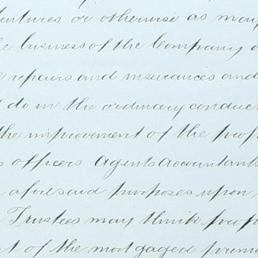 entures or otherwise as may
he business of the Company o
repairs and insurances and
do in the ordinary conduc
the improvement of the prop
s officers Agents Accountants
aforesaid purposes upon
Trustees may think prop
t of the mortgaged premi